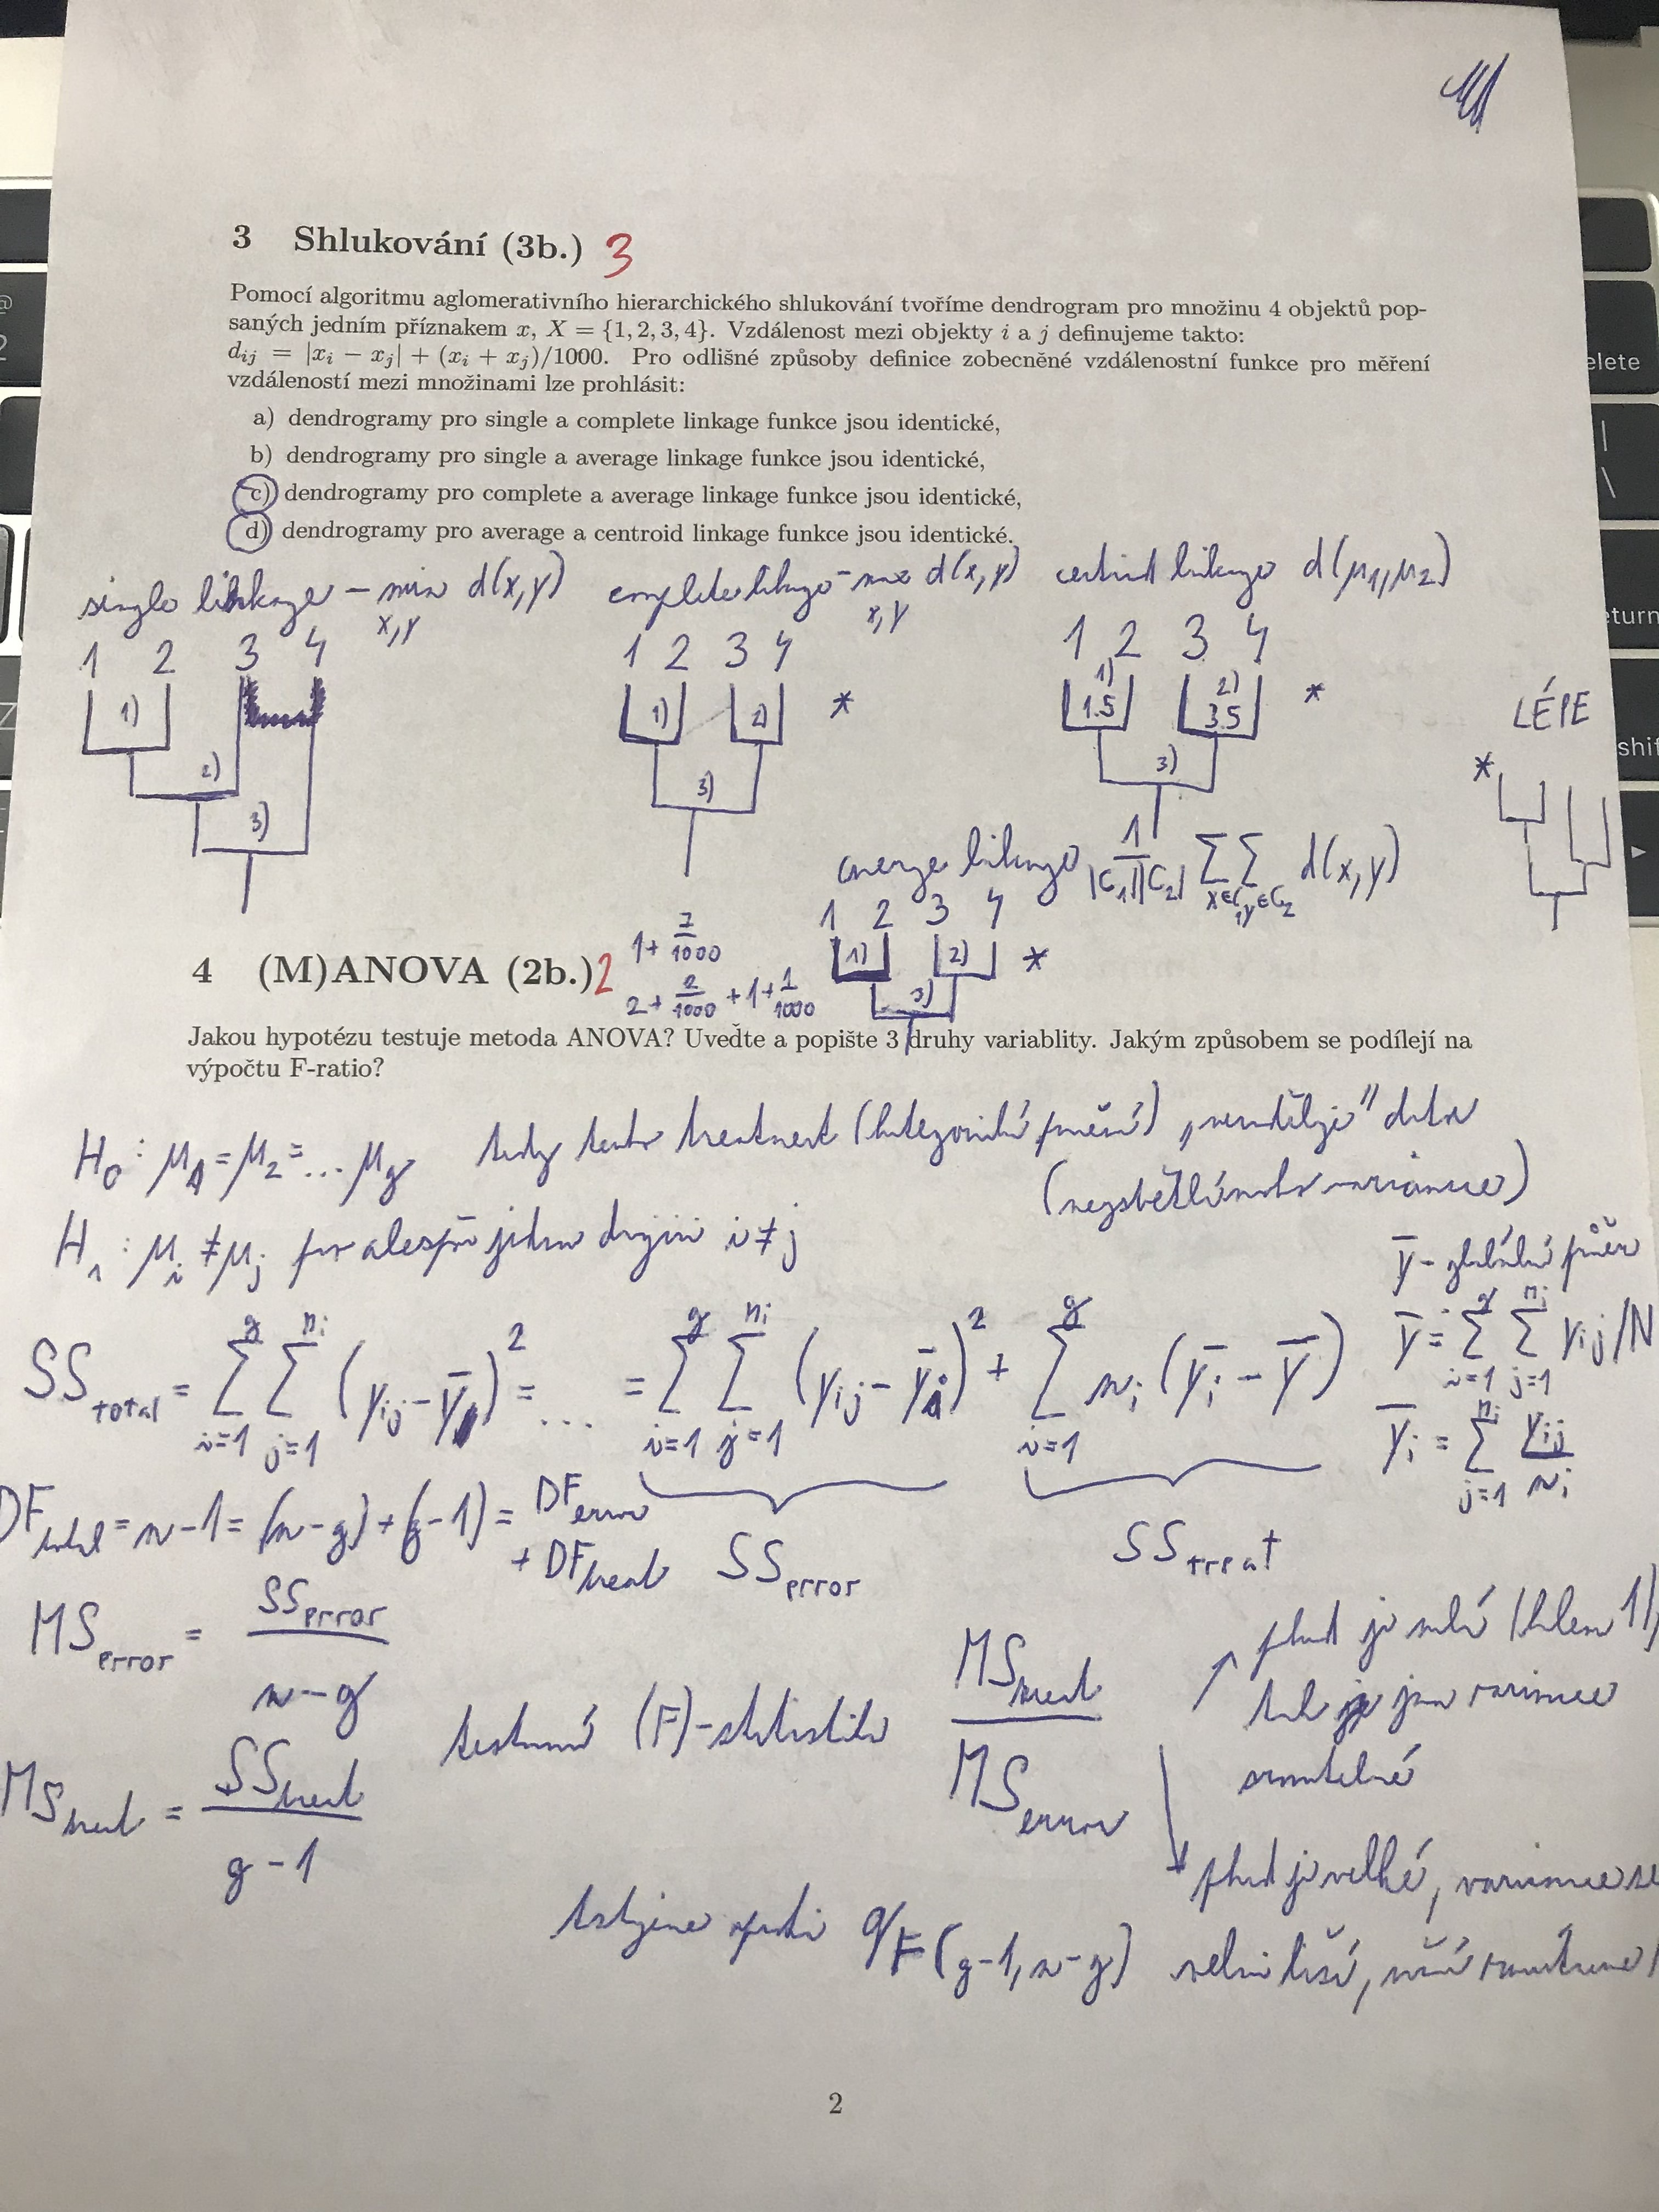 3 Shlukování (3b.) 3
Pomocí algoritmu aglomerativního hierarchického shlukování tvoříme dendrogram pro množinu 4 objektů pop-
saných jedním příznakem x, X = {1, 2, 3, 4}. Vzdálenost mezi objekty i a j definujeme takto:
d_ij = |x_i − x_j| + (x_i + x_j)/1000. Pro odlišné způsoby definice zobecněné vzdálenostní funkce pro měření
vzdáleností mezi množinami lze prohlásit:
a) dendrogramy pro single a complete linkage funkce jsou identické,
b) dendrogramy pro single a average linkage funkce jsou identické,
c) dendrogramy pro complete a average linkage funkce jsou identické,
d) dendrogramy pro average a centroid linkage funkce jsou identické.
single linkage – min d(x,y) complete linkage – max d(x,y) centroid linkage d(μ1, μ2)
x,y x,y
1 2 3 4 1 2 3 4 1 2 3 4
1) 1) 2) * 1) 1.5 2) 3.5 *
2) 3) 3)
3)
LÉPE
*
average linkage 1/|C1||C2| ∑ x∈C1 ∑ y∈C2 d(x,y)
1 2 3 4
1) 2) *
3)
4 (M)ANOVA (2b.) 2
1 + 7/1000
2 + 2/1000 + 1 + 1/1000
Jakou hypotézu testuje metoda ANOVA? Uveďte a popište 3 druhy variablity. Jakým způsobem se podílejí na
výpočtu F-ratio?
H0: μ1 = μ2 = ... μg tedy tento treatment (kategorické ) „ " data
H1: μi ≠ μj pro alespoň jednu dvojici i ≠ j
ȳ – globální průměr
SS total = ∑ i=1 g ∑ j=1 ni (yij − ȳ)² = ... = ∑ i=1 g ∑ j=1 ni (yij − ȳi)² + ∑ i=1 g ni (ȳi − ȳ) ȳ = ∑ i=1 g ∑ j=1 ni yij/N
ȳi = ∑ j=1 ni yij/ni
DF total = n−1 = (n−g) + (g−1) = DF error
+ DF treat SS error SS treat
MS error = SS error / n−g
MS treat = SS treat / g−1
testová (F)-statistika MS treat / MS error
pokud je malé (kolem 1),
tak jsou variance
srovnatelné
pokud je velké, variance se
velmi liší,
testujeme oproti qF(g−1, n−g)
2